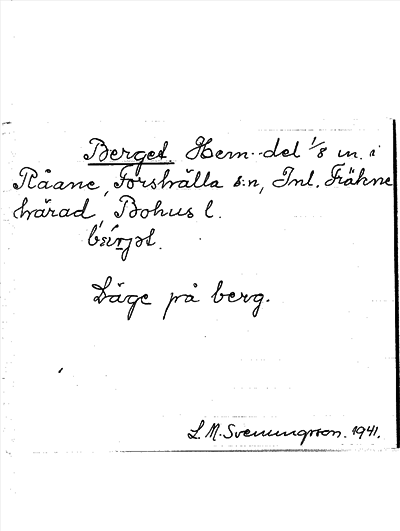 Berget. Hem.-del 1/8 m. i
Råane, Forshälla s:n, Inl. Fräkne
härad, Bohus l.
Läge på berg.
L. M. Svenungsson. 1941.